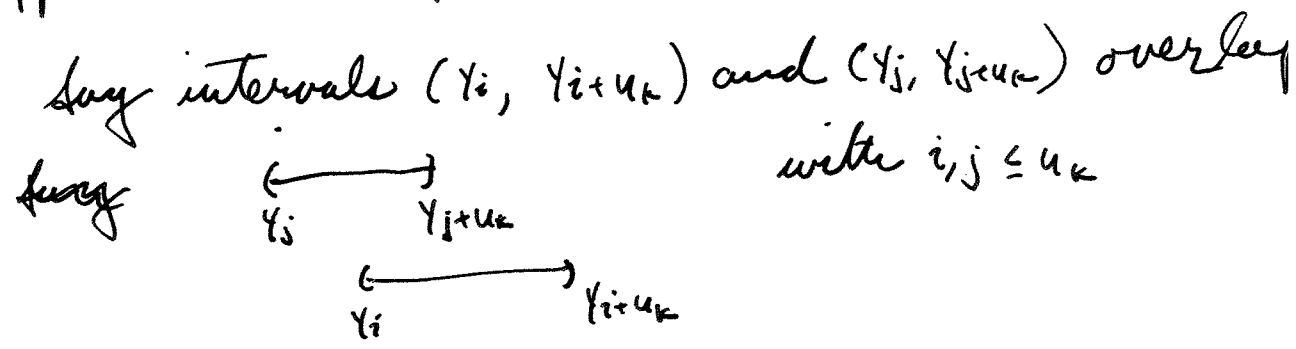 Say intervals (Yi, Yi+uk) and (Yj, Yj+uk) overlap
with i, j ≤ uk
Say
Yj Yj+uk
Yi Yi+uk